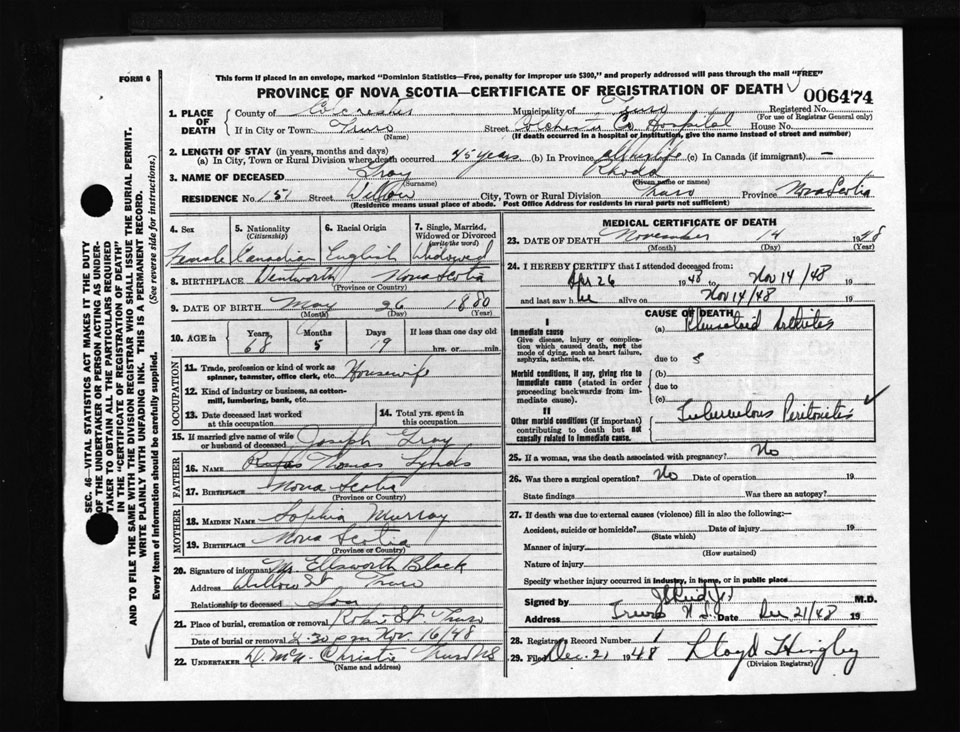 FORM 6
This form if placed in an envelope, marked "Dominion Statistics—Free, penalty for improper use $300," and properly addressed will pass through the mail "FREE"
PROVINCE OF NOVA SCOTIA—CERTIFICATE OF REGISTRATION OF DEATH
006474
1. PLACE OF DEATH
County of Colchester Municipality of Truro Registered No.
(For use of Registrar General only)
If in City or Town Truro Street Hospital House No.
(Name) (If death occurred in a hospital or institution, give the name instead of street and number)
2. LENGTH OF STAY (in years, months and days)
(a) In City, Town or Rural Division where death occurred 45 years (b) In Province all her life (c) In Canada (if immigrant) —
3. NAME OF DECEASED Gray Rhoda
(Surname) (Given name or names)
RESIDENCE No. 151 Street Willow City, Town or Rural Division Truro Province Nova Scotia
(Residence means usual place of abode. Post Office Address for residents in rural parts not sufficient)
4. Sex 5. Nationality (Citizenship) 6. Racial Origin 7. Single, Married, Widowed or Divorced (write the word)
Female Canadian English Widowed
8. BIRTHPLACE Wentworth Nova Scotia
(Province or Country)
9. DATE OF BIRTH May 26 1880
(Month) (Day) (Year)
10. AGE in Years Months Days If less than one day old
68 5 19 hrs. or min.
OCCUPATION
11. Trade, profession or kind of work as spinner, teamster, office clerk, etc. Housewife
12. Kind of industry or business, as cotton-mill, lumbering, bank, etc.
13. Date deceased last worked at this occupation
14. Total yrs. spent in this occupation
15. If married give name of wife or husband of deceased Joseph Gray
FATHER
16. NAME Rufus Thomas Lynds
17. BIRTHPLACE Nova Scotia
(Province or Country)
MOTHER
18. MAIDEN NAME Sophia Murray
19. BIRTHPLACE Nova Scotia
(Province or Country)
20. Signature of informant Mr. Ellsworth Black
Address Willow St Truro
Relationship to deceased Son
21. Place of burial, cremation or removal Robie St. Truro
Date of burial or removal 2.30 pm Nov. 16/48
22. UNDERTAKER Christie Truro NS
(Name and address)
MEDICAL CERTIFICATE OF DEATH
23. DATE OF DEATH November 14 1948
(Month) (Day) (Year)
24. I HEREBY CERTIFY that I attended deceased from:
Apr 26 1948 to Nov 14/48 19
and last saw her alive on Nov 14/48 19
CAUSE OF DEATH
I
Immediate cause
Give disease, injury or complication which caused death, not the mode of dying, such as heart failure, asphyxia, asthenia, etc.
(a) Rheumatoid Arthritis
due to
Morbid conditions, if any, giving rise to immediate cause (stated in order proceeding backwards from immediate cause).
(b)
due to
(c)
II
Other morbid conditions (if important) contributing to death but not causally related to immediate cause.
Tuberculous Peritonitis
25. If a woman, was the death associated with pregnancy? No
26. Was there a surgical operation? No Date of operation 19
State findings Was there an autopsy?
27. If death was due to external causes (violence) fill in also the following:—
Accident, suicide or homicide? Date of injury 19
(State which)
Manner of injury
(How sustained)
Nature of injury
Specify whether injury occurred in industry, in home, or in public place
Signed by M.D.
Address Truro N.S. Date Dec 21/48 19
28. Registrar's Record Number 1
29. Filed Dec. 21 1948 Lloyd Hingley
(Division Registrar)
SEC. 46—VITAL STATISTICS ACT MAKES IT THE DUTY
OF THE UNDERTAKER OR PERSON ACTING AS UNDER-
TAKER TO OBTAIN ALL THE PARTICULARS REQUIRED
IN THE "CERTIFICATE OF REGISTRATION OF DEATH"
AND TO FILE THE SAME WITH THE DIVISION REGISTRAR WHO SHALL ISSUE THE BURIAL PERMIT.
WRITE PLAINLY WITH UNFADING INK. THIS IS A PERMANENT RECORD.
Every item of information should be carefully supplied. (See reverse side for instructions.)